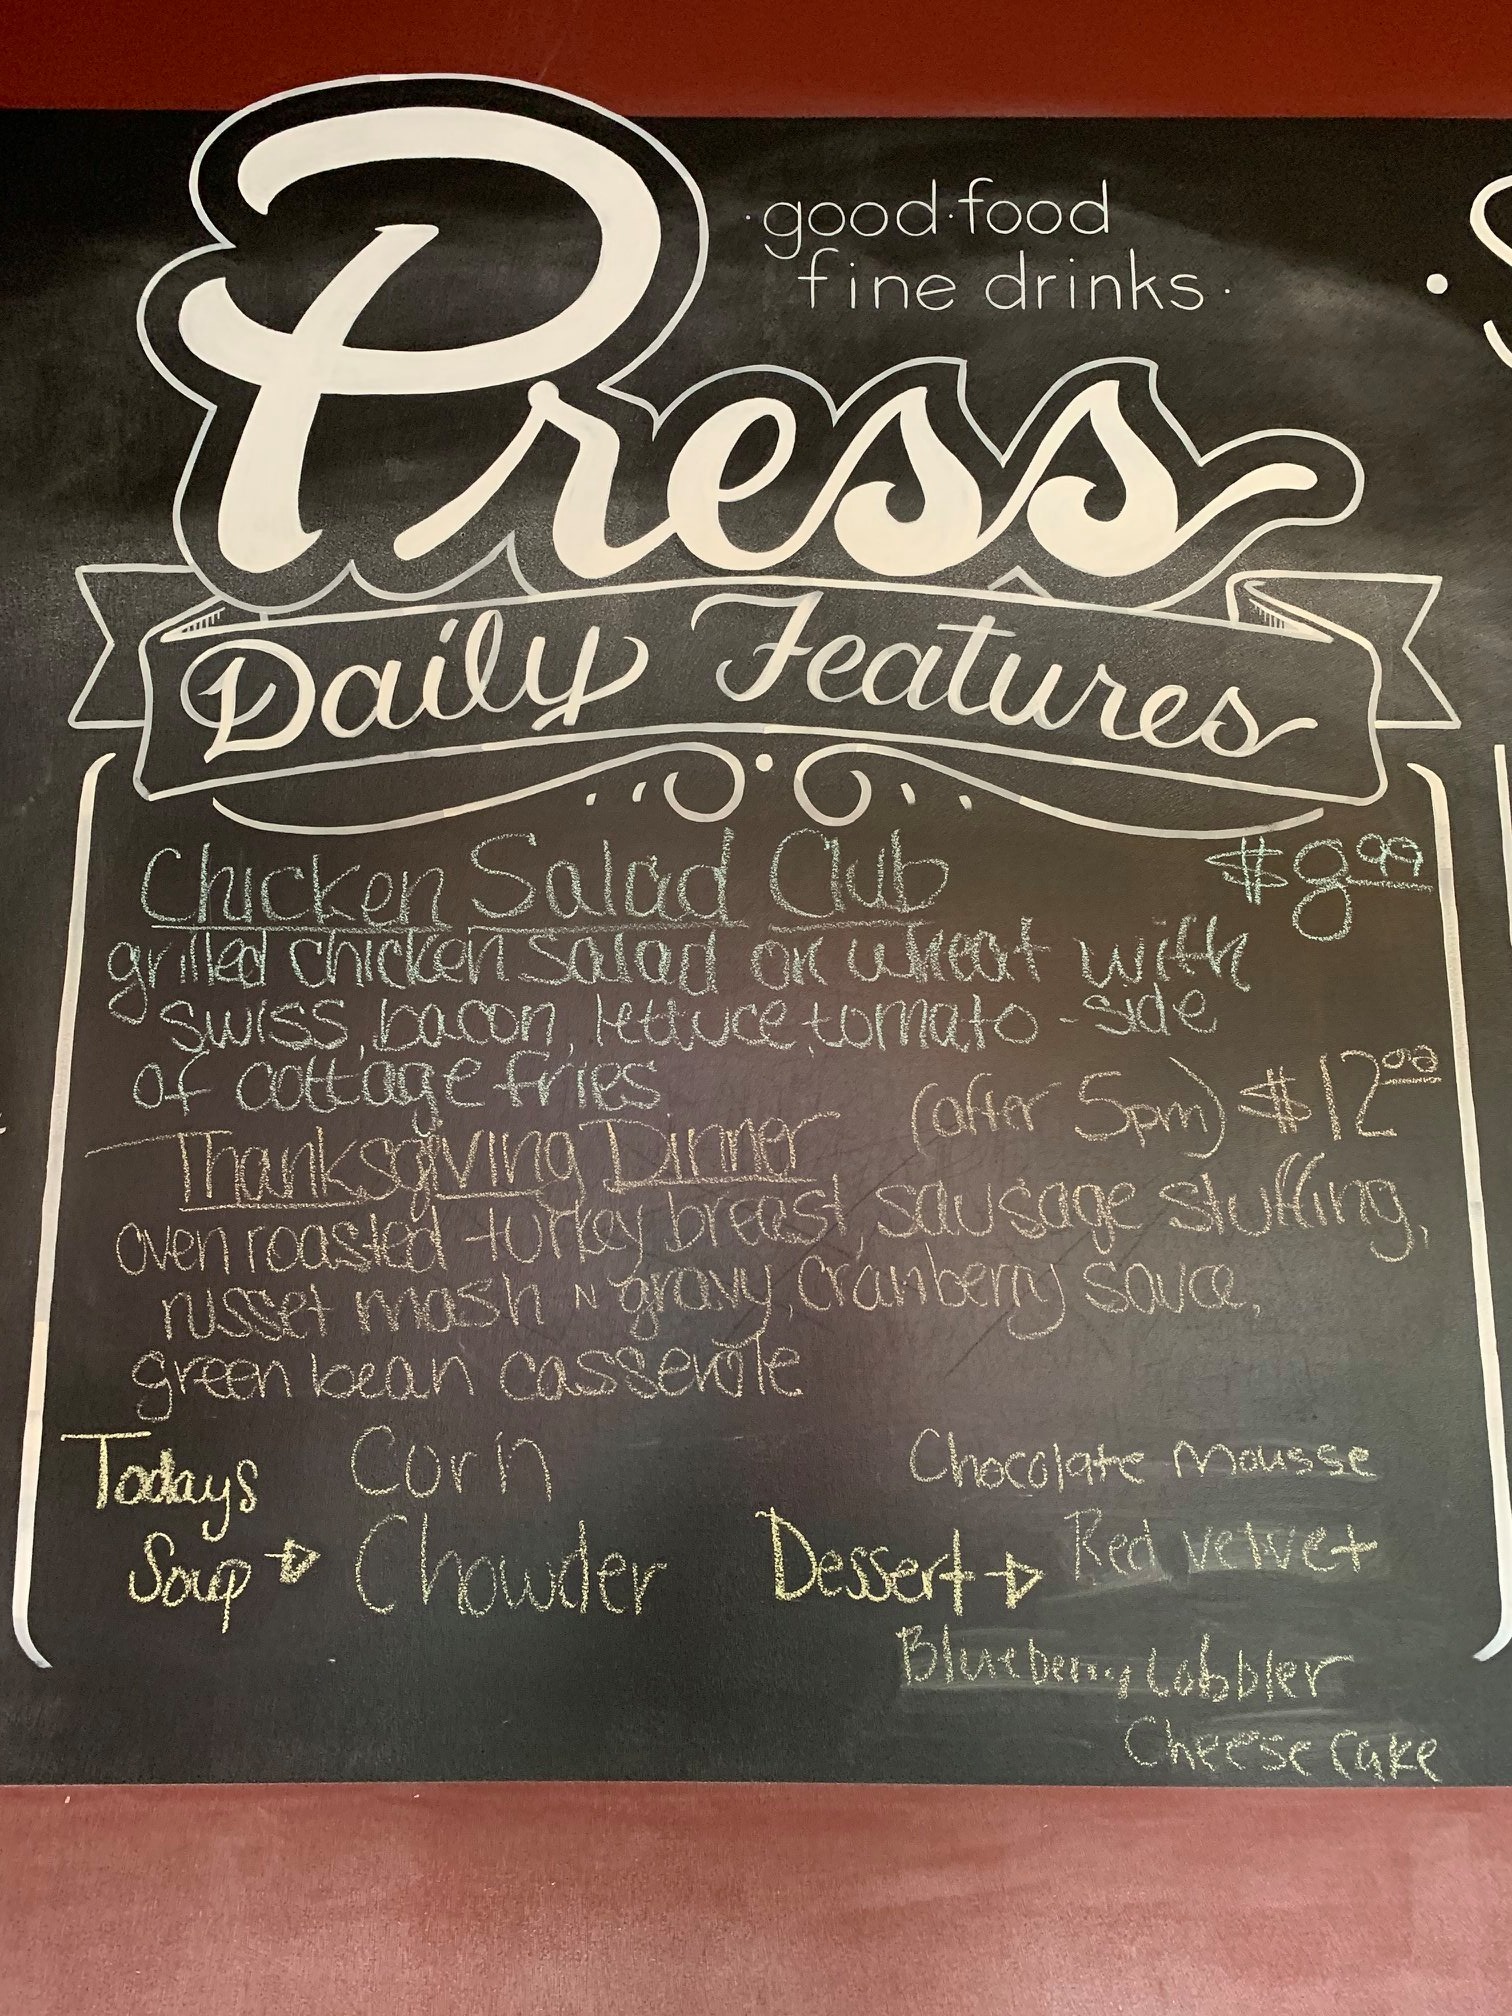 Press
·good·food
fine drinks·
Daily Features
Chicken Salad Club $8.99
grilled chicken salad on wheat with
swiss, bacon, lettuce, tomato - side
of cottage fries
Thanksgiving Dinner (after 5pm) $12
oven roasted turkey breast, sausage stuffing,
russet mash N gravy, cranberry sauce,
green bean casserole
Todays Corn
Soup → Chowder
Chocolate Mousse
Dessert → Red velvet
Blueberry Cobbler
Cheese Cake